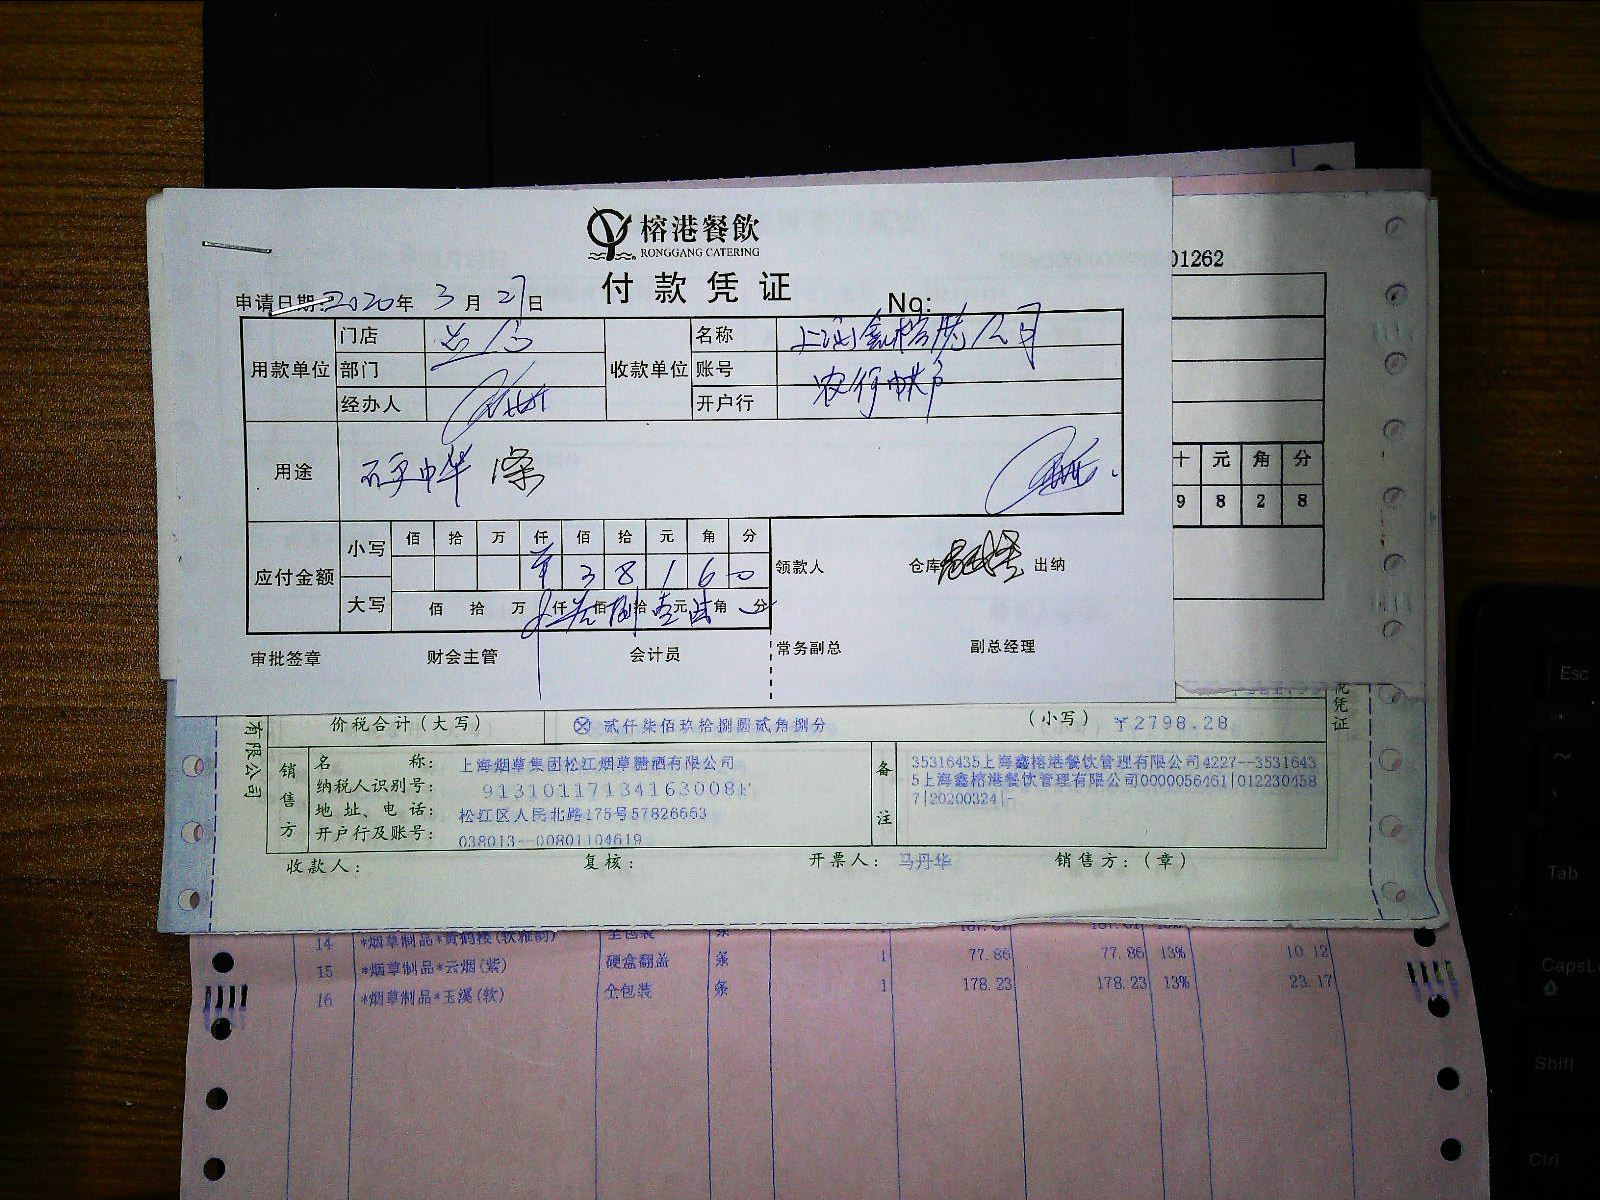 榕港餐飲
RONGGANG CATERING
付款凭证
申请日期:2020年3月27日
No:
01262
用款单位
门店
部门
经办人
收款单位
名称
账号
开户行
用途
硬中华
应付金额
小写
佰 拾 万 仟 佰 拾 元 角 分
¥ 3 8 1 6 0
大写
佰 拾 万 仟 佰 拾 元 角 分
领款人
仓库
出纳
审批签章
财会主管
会计员
常务副总
副总经理
十 元 角 分
9 8 2 8
有限公司
价税合计(大写)
⊗ 贰仟柒佰玖拾捌圆贰角捌分
(小写) ¥2798.28
销售方
名称: 上海烟草集团松江烟草糖酒有限公司
纳税人识别号: 91310117134163008F
地址、电话: 松江区人民北路175号57826663
开户行及账号: 038013--00801104619
备注
35316435上海鑫榕港餐饮管理有限公司4227--3531643
5上海鑫榕港餐饮管理有限公司0000056461|012230458
7|20200324|-
收款人:
复核:
开票人: 马丹华
销售方:(章)
14 *烟草制品*黄鹤楼(软雅韵) 全包装 条 1
15 *烟草制品*云烟(紫) 硬盒翻盖 条 1 77.86 77.86 13% 10.12
16 *烟草制品*玉溪(软) 全包装 条 1 178.23 178.23 13% 23.17
Esc
Tab
CapsL
Shift
Ctrl